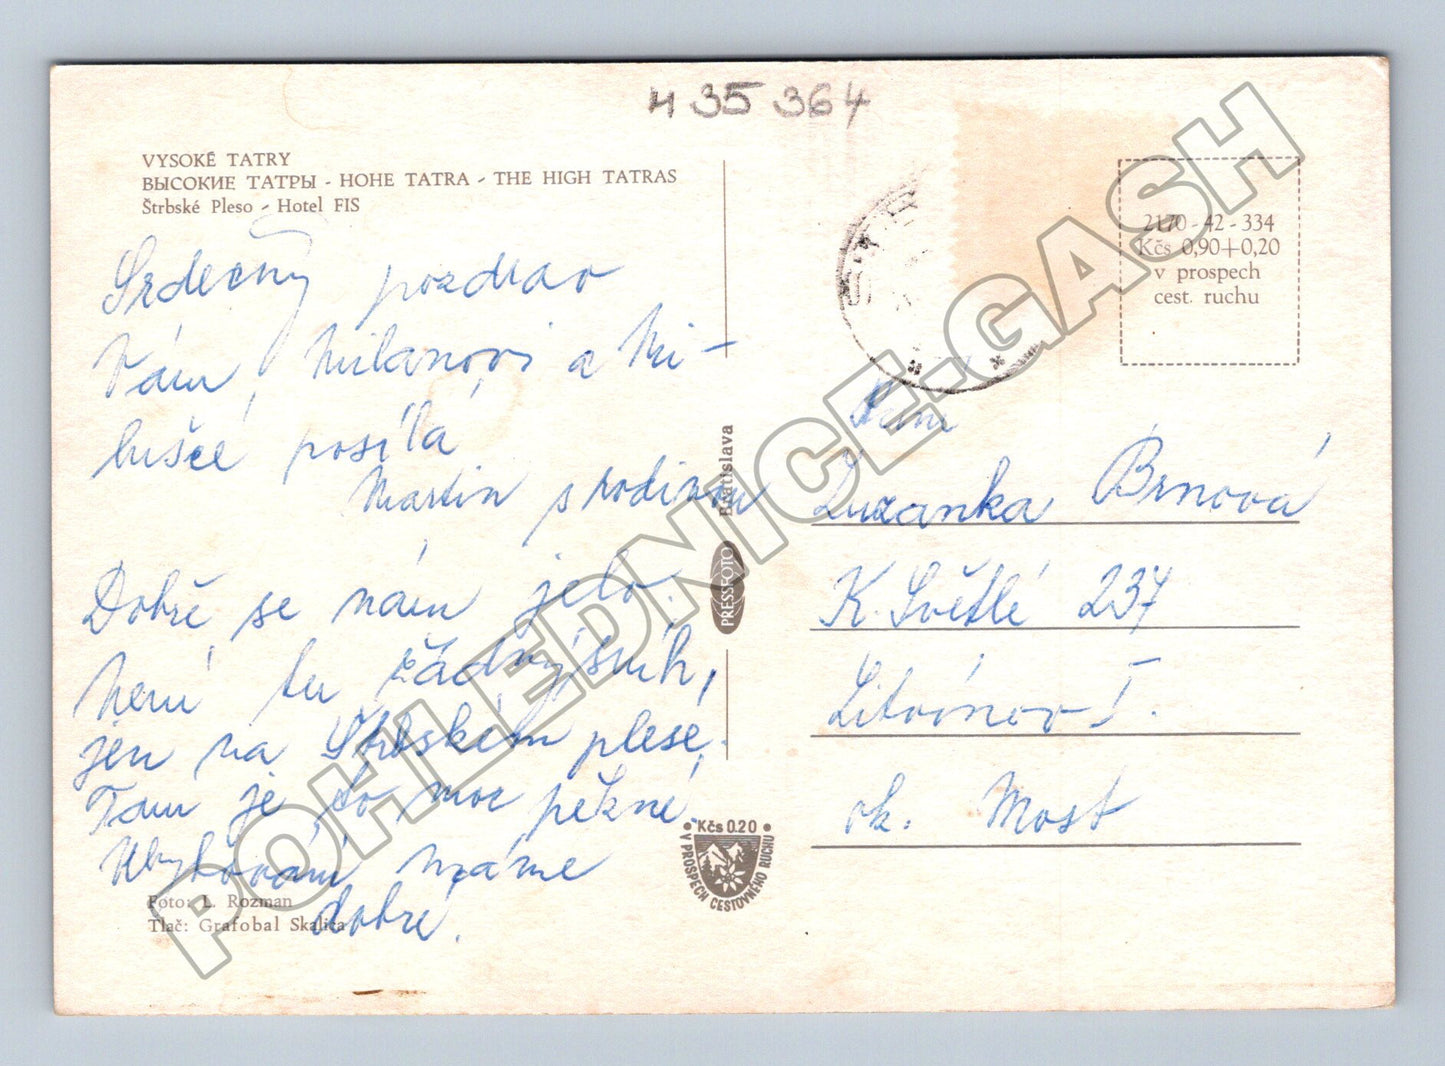 H 35 364
VYSOKÉ TATRY
ВЫСОКИЕ ТАТРЫ - HOHE TATRA - THE HIGH TATRAS
Štrbské Pleso - Hotel FIS
Srdečný pozdrav
Vám, Milanovi a Mi-
lušce posílá
Martin s rodinou
Dobře se nám jelo.
Není tu žádný sníh,
jen na Štrbském plese.
Tam je to moc pěkné.
Ubytování máme
dobré.
Foto: L. Rozman
Tlač: Grafobal Skalica
PRESSFOTO Bratislava
• Kčs 0.20 •
V PROSPECH CESTOVNÉHO RUCHU
2170 - 42 - 334
Kčs 0,90+0,20
v prospech
cest. ruchu
Zuzanka Brnová
K. Světlé 237
Litvínov I.
ok. Most
POHLEDNICE-GASH